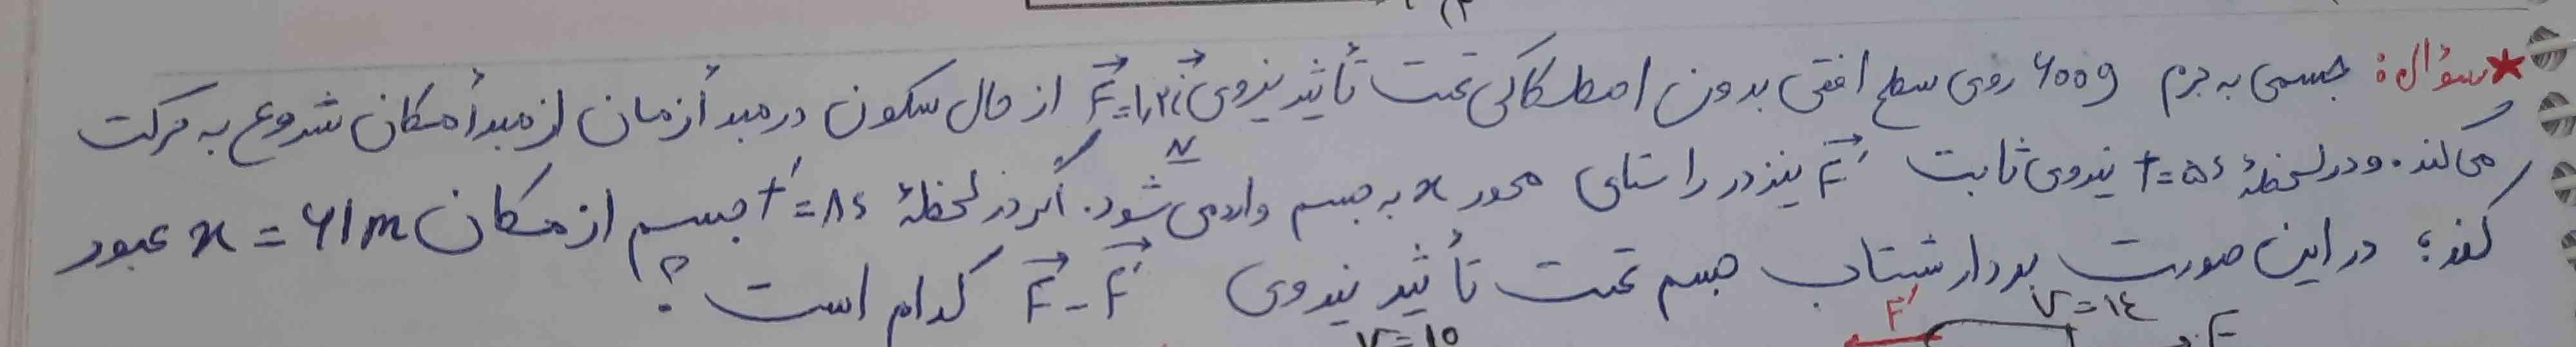 ★سؤال: جسمی به جرم ۶۰۰g روی سطح افقی بدون اصطکاکی تحت تأثیر نیروی F=۱٫۲i از حال سکون در مبدأ زمان از مبدأ مکان شروع به حرکت
می‌کند. و در لحظهٔ t=۵s نیروی ثابت F' نیز در راستای محور x به جسم وارد می‌شود. اگر در لحظهٔ t'=۸s جسم از مکان x=۶۱m عبور
کند؛ در این صورت بردار شتاب جسم تحت تأثیر نیروی F-F' کدام است؟
F'
F